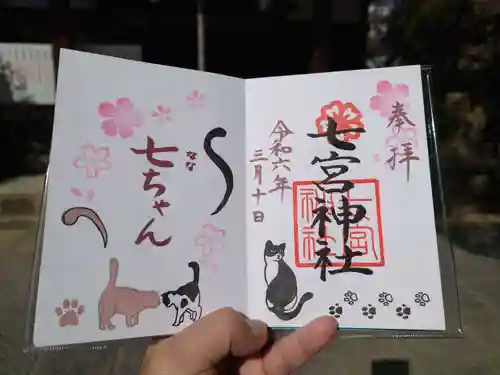 奉拝
七宮神社
令和六年
三月十日
七ちゃん
なな